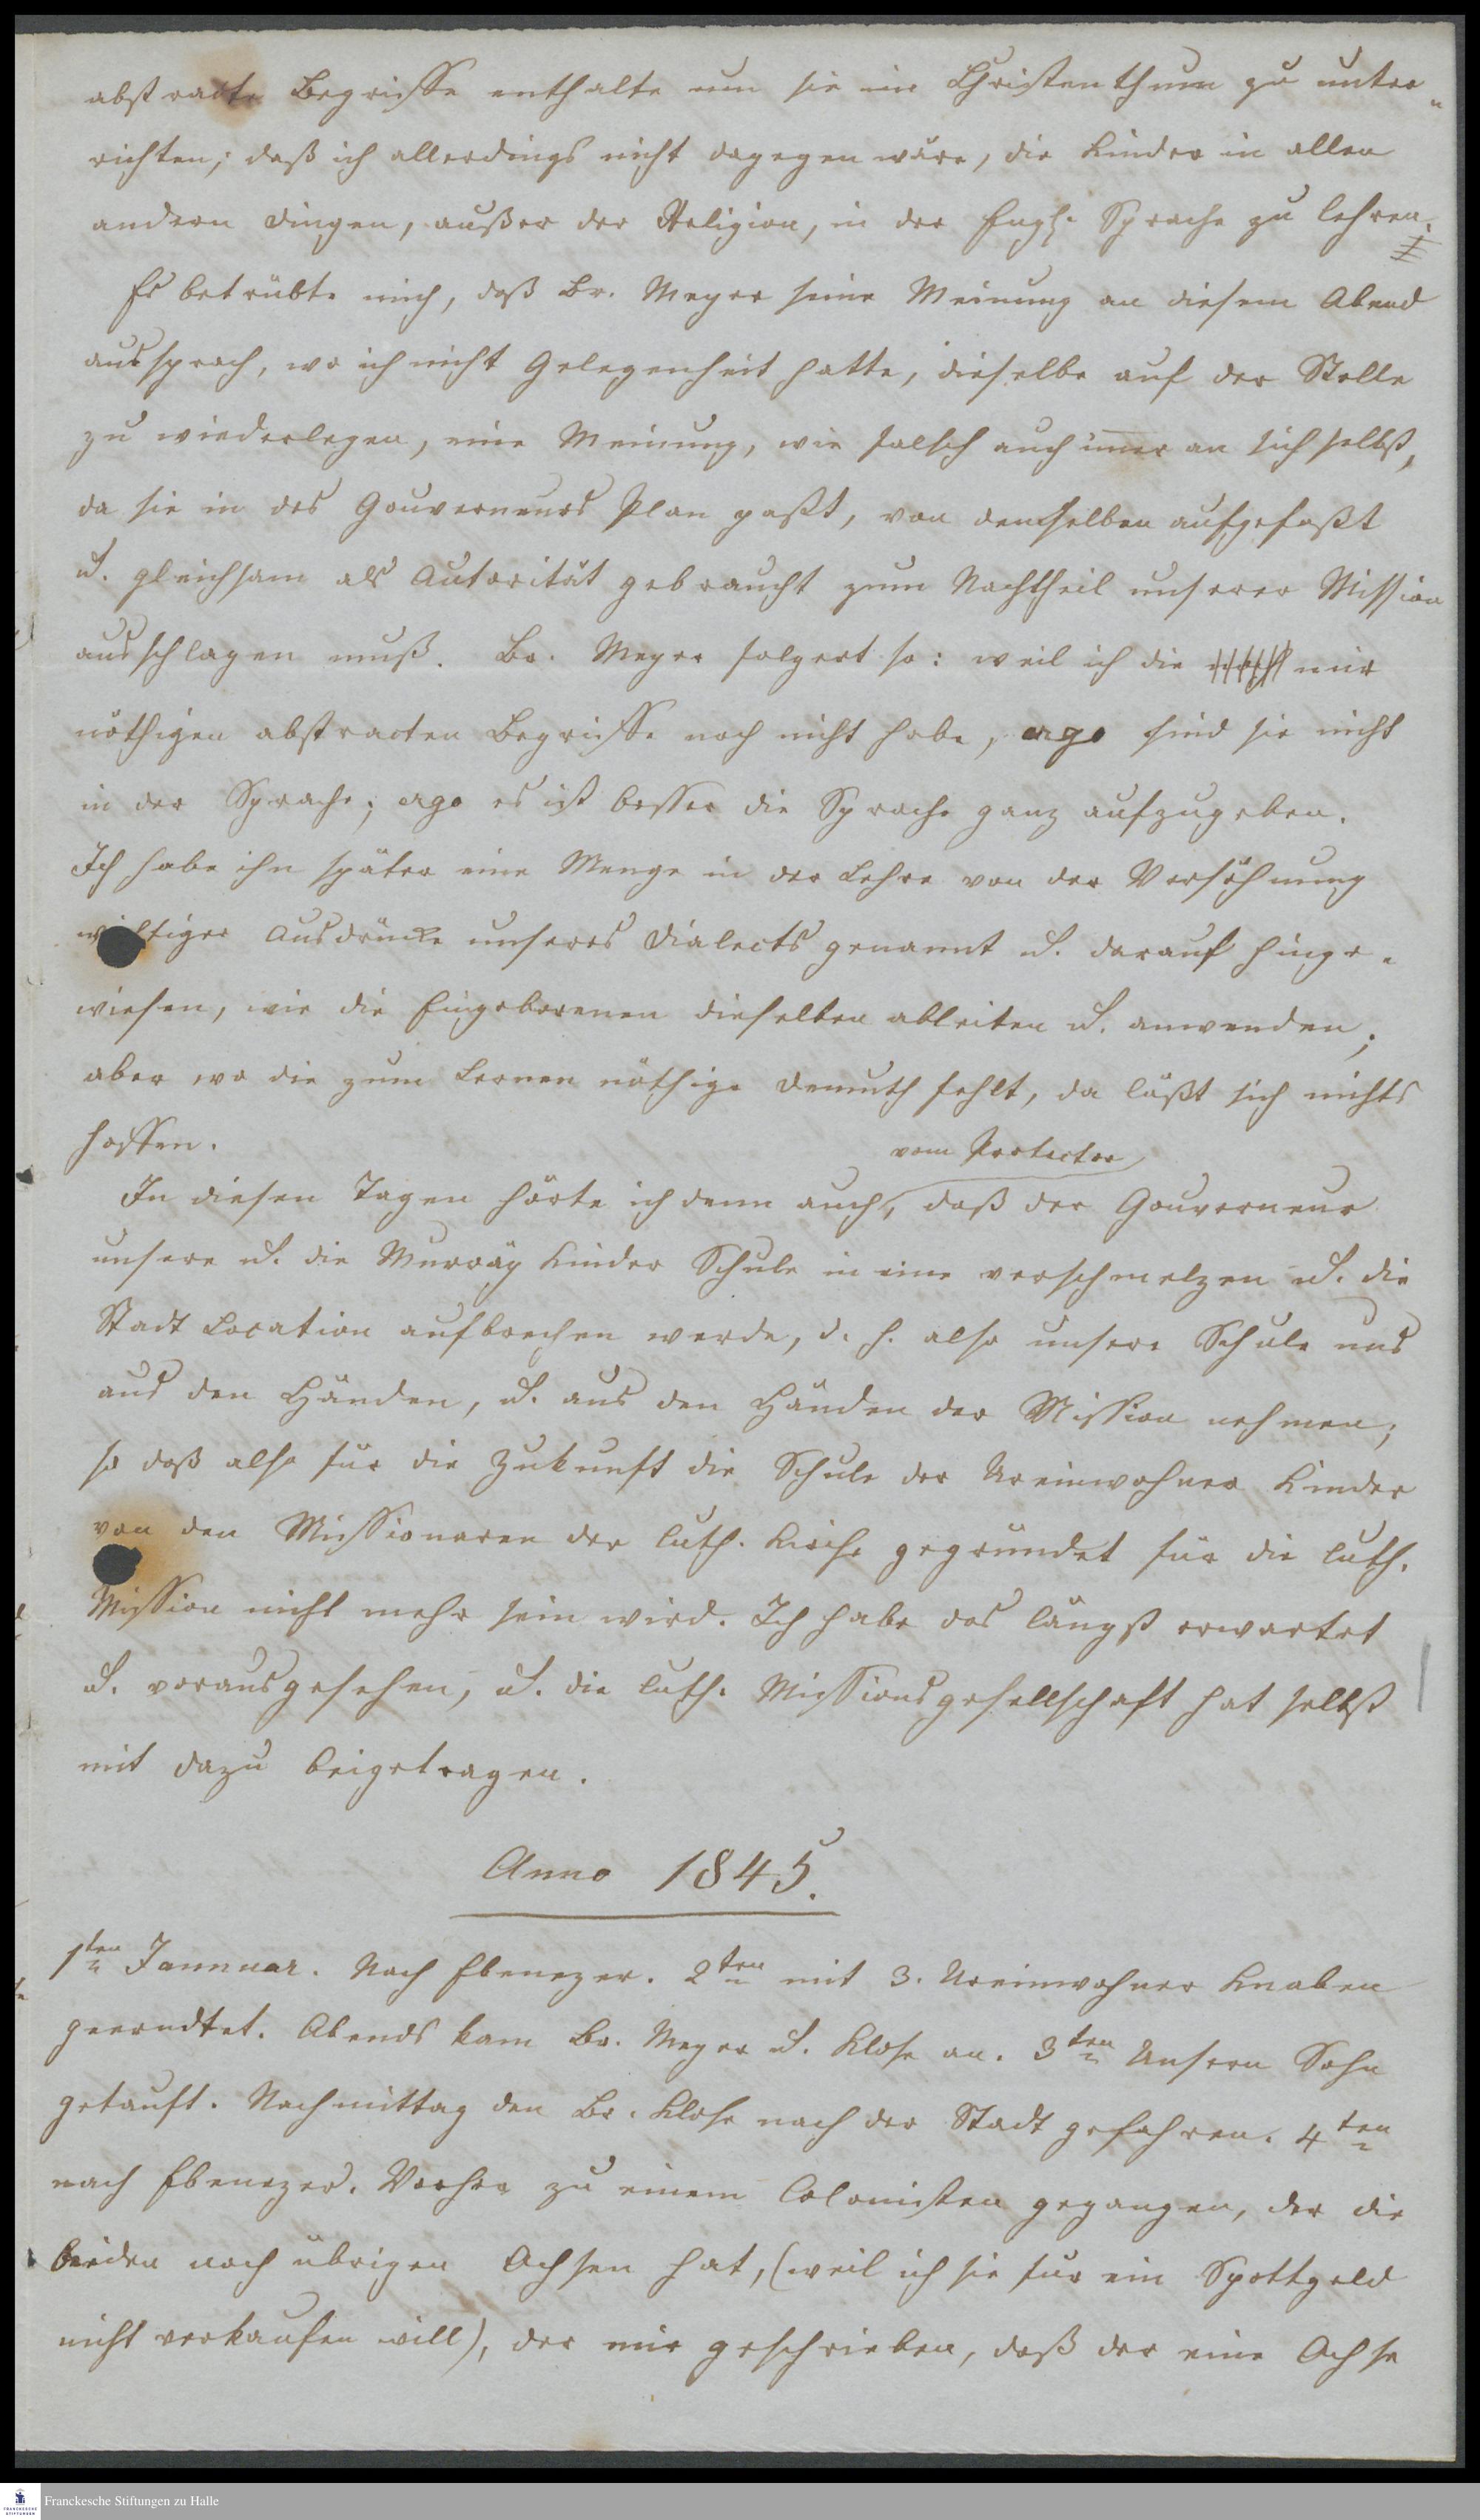 abstracte Begriffe enthalte um sie im Christenthum zu unter-
richten; daß ich allerdings nicht dagegen wäre, die Kinder in allen
andern Dingen, außer der Religion, in der Engl. Sprache zu lehren.
Es betrübte mich, daß Br. Meyer seine Meinung an diesem Abend
aussprach, wo ich nicht Gelegenheit hatte, dieselbe auf der Stelle
zu wiederlegen, eine Meinung, wie falsch auch im̅er an sich selbst,
da sie in des Gouverneurs Plan paßt, von demselben aufgefaßt
u. gleichsam als Autorität gebraucht zum Nachtheil unserer Mission
ausschlagen muß. Br. Meyer folgert so: weil ich die mir
nöthigen abstracten Begriffe noch nicht habe, ergo sind sie nicht
in der Sprache; ergo es ist besser die Sprache ganz aufzugeben.
Ich habe ihn später eine Menge in der Lehre von der Versöhnung
wichtiger Ausdrücke unseres Dialects genannt u. darauf hinge-
wiesen, wie die Eingeborenen dieselben ableiten u. anwenden;
aber wo die zum Lernen nöthige Demuth fehlt, da läßt sich nichts
hoffen.
vom Protector
In diesen Tagen hörte ich denn auch, daß der Gouverneur
unsere u. die Murray Kinder Schule in eine verschmelzen u. die
Stadt Location aufbrechen werde, d. h. also unsere Schule uns
aus den Händen, u. aus den Händen der Mission nehmen;
so daß also für die Zukunft die Schule der Ureinwohner Kinder
von den Missionaren der luth. Kirche gegründet für die luth.
Mission nicht mehr sein wird. Ich habe das längst erwartet
u. vorausgesehen, u. die luth. Missionsgesellschaft hat selbst
mit dazu beigetragen.
Anno 1845.
1ten Jannuar. Nach Ebenezer. 2ten mit 3. Ureinwohner Knaben
geerndtet. Abends kam Br. Meyer u. Klose an. 3ten Unsern Sohn
getauft. Nachmittag den Br. Klose nach der Stadt gefahren. 4ten
nach Ebenezer. Vorher zu einem Colonisten gegangen, der die
beiden noch übrigen Ochsen hat, (weil ich sie für ein Spottgeld
nicht verkaufen will), der mir geschrieben, daß der eine Ochse
Franckesche Stiftungen zu Halle